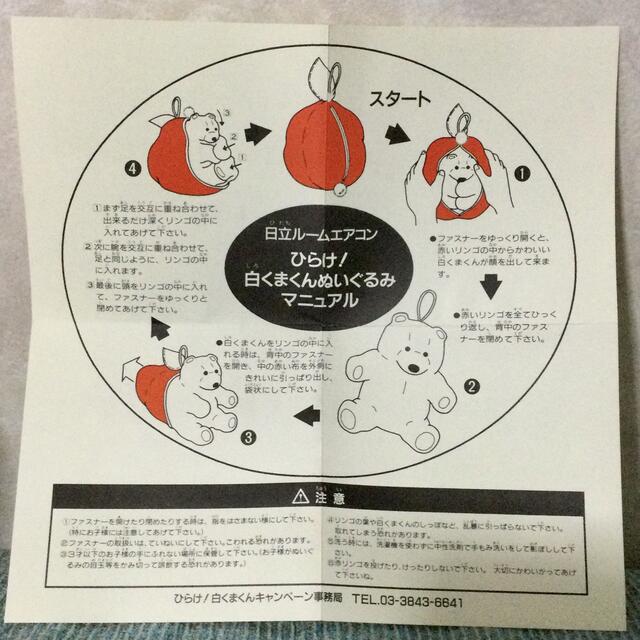 スタート
日立ルームエアコン
ひらけ!
白くまくんぬいぐるみ
マニュアル
❶
●ファスナーをゆっくり開くと、
赤いリンゴの中からかわいい
白くまくんが顔を出して来ま
す。
●赤いリンゴを全てひっく
り返し、背中のファス
ナーを閉めて下さい。
❷
●白くまくんをリンゴの中に入
れる時は、背中のファスナー
を開き、中の赤い布を外側に
きれいに引っぱり出し、
袋状にして下さい。
❸
❹
③
②
①
①まず足を交互に重ね合わせて、
出来るだけ深くリンゴの中に
入れてあげて下さい。
②次に腕を交互に重ね合わせて、
足と同じように、リンゴの中
に入れます。
③最後に頭をリンゴの中に入れ
て、ファスナーをゆっくりと
閉めてあげて下さい。
⚠注意
①ファスナーを開けたり閉めたりする時は、指をはさまない様にして下さい。
(特にお子様には注意してあげて下さい。)
②ファスナーの取扱いは、ていねいにして下さい。こわれる恐れがあります。
③3才以下のお子様の手にふれない場所に保管して下さい。(お子様がぬいぐ
るみの目玉等をかみ切って誤飲する恐れがあります。)
④リンゴの葉や白くまくんのしっぽなど、乱暴に引っぱらないで下さい。
取れてしまう恐れがあります。
⑤洗う時には、洗濯機を使わずに中性洗剤で手もみ洗いをして陰干しして下
さい。
⑥赤リンゴを投げたり、けったりしないで下さい。大切にかわいがってあげ
て下さいね。
ひらけ!白くまくんキャンペーン事務局 TEL.03-3843-6641